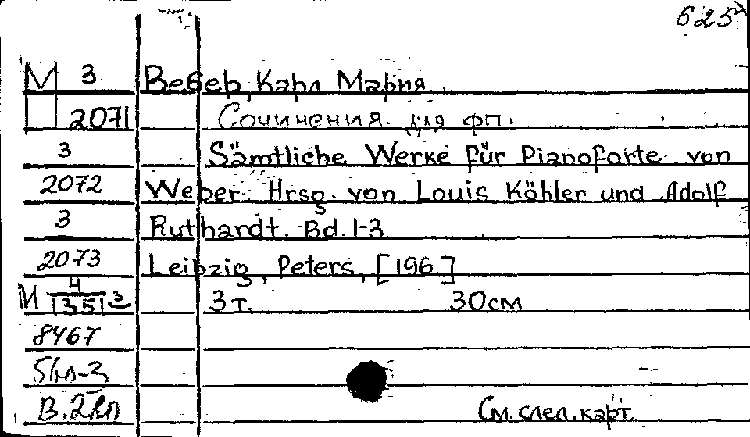 625
М 3 Вебер, Карл Мария
2071 Сочинения для фп.
3 Sämtliche Werke für Pianoforte von
2072 Weber. Hrsg. von Louis Köhler und Adolf
3 Ruthardt. Bd. 1-3
2073 Leipzig, Peters, [196 ]
М 3 т. 30 см
8467
См. след. карт.